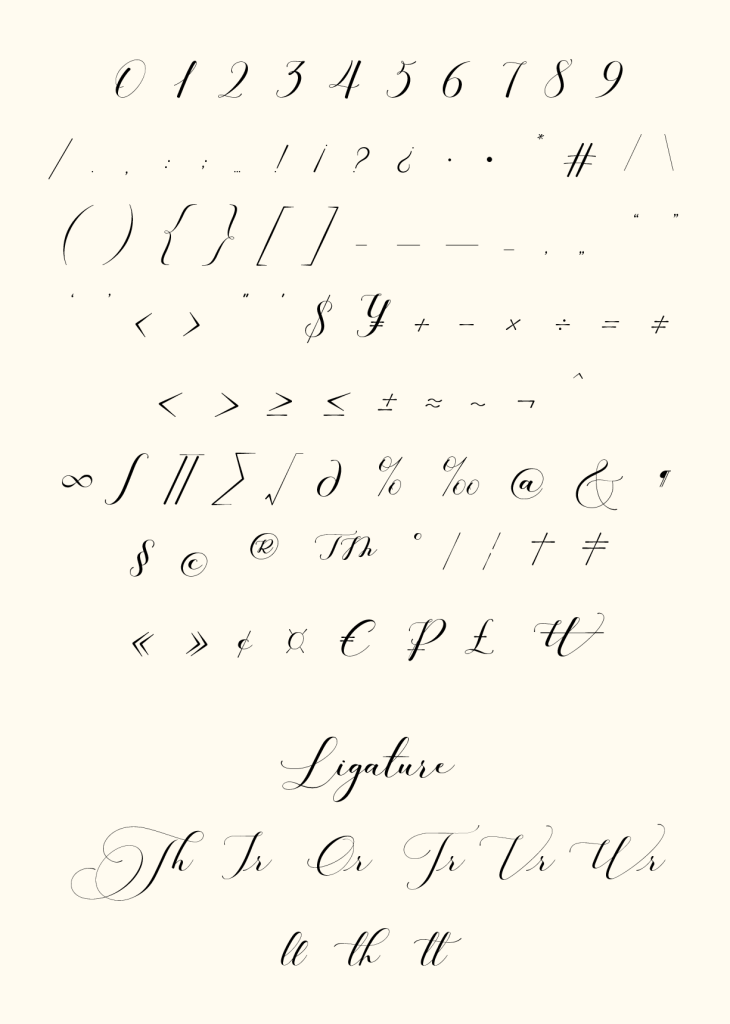 0 1 2 3 4 5 6 7 8 9
/ . , : ; … ! ¡ ? ¿ · • * # / \
( ) { } [ ] - – — _ ‚ „ “ ”
‘ ’ ‹ › " ' $ ¥ + − × ÷ = ≠
< > ≥ ≤ ± ≈ ~ ¬ ^
∞ ∫ ∏ ∑ √ ∂ % ‰ @ & ¶
§ © ® ™ ° | ¦ † ‡
« » ¢ ¤ € ₽ £ ₩
Ligature
Th Ir Or Tr Vr Wr
ll th tt